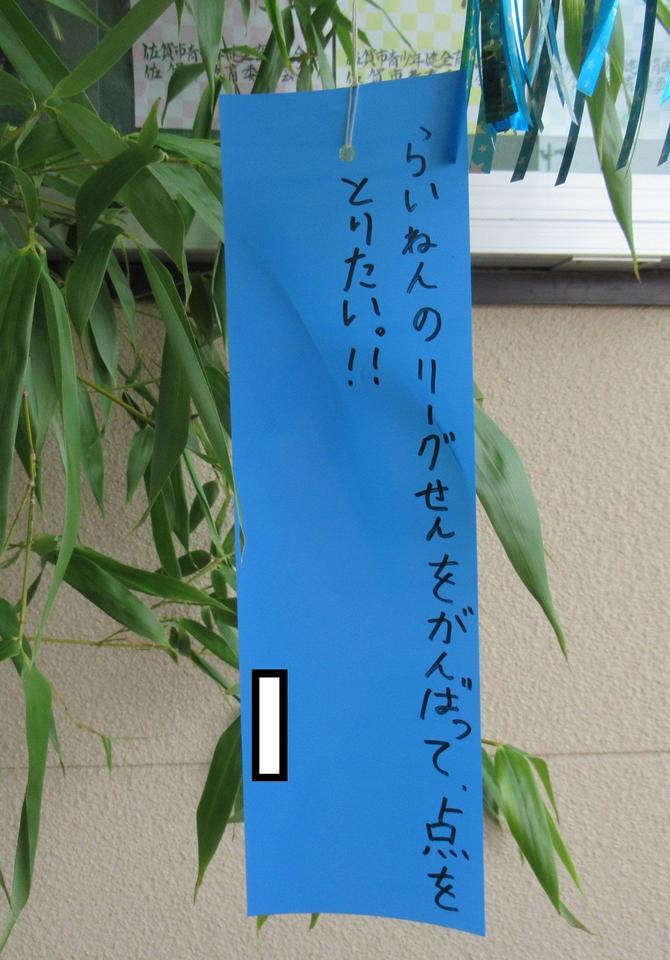 らいねんのリーグせんをがんばって、点を
とりたい。!!
佐賀市青少年健全育
佐賀市教育委員会